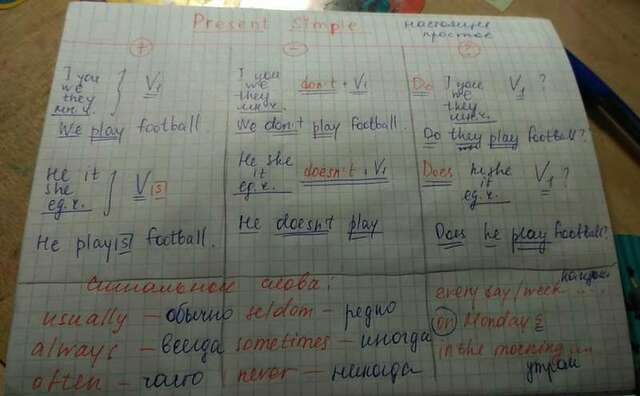 Present Simple
настоящее
простое
+
-
?
I you
we
they
мн.ч.
V₁
We play football.
He it
she
ед.ч.
V s
He play s football.
I you
we
they
мн.ч.
don't + V₁
We don't play football.
He she
it
ед.ч.
doesn't + V₁
He doesn't play
Do I you
we
they
мн.ч.
V₁ ?
Do they play football?
Does he she
it
ед.ч.
V₁ ?
Does he play football?
Сигнальные слова:
usually – обычно
always – всегда
often – часто
seldom – редко
sometimes – иногда
never – никогда
every day/week ...
on Monday s
in the morning ...
утром